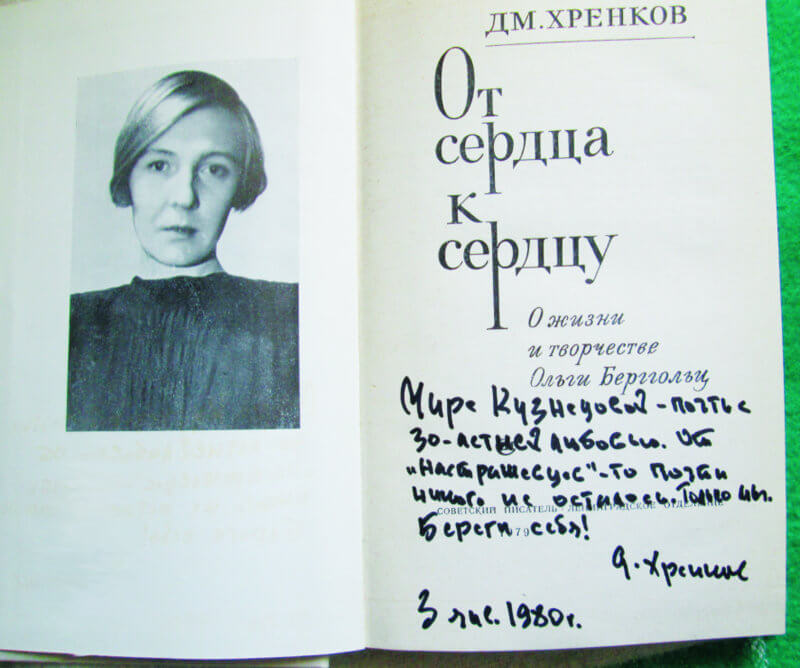 ДМ. ХРЕНКОВ
От
сердца
к
сердцу
О жизни
и творчестве
Ольги Берггольц
Мире Кузнецовой - почти с
30-летней любовью. От
-то почти
никого не осталось. Только мы.
СОВЕТСКИЙ ПИСАТЕЛЬ · ЛЕНИНГРАДСКОЕ ОТДЕЛЕНИЕ
1979
Береги себя!
Д. Хренков
3 янв. 1980 г.